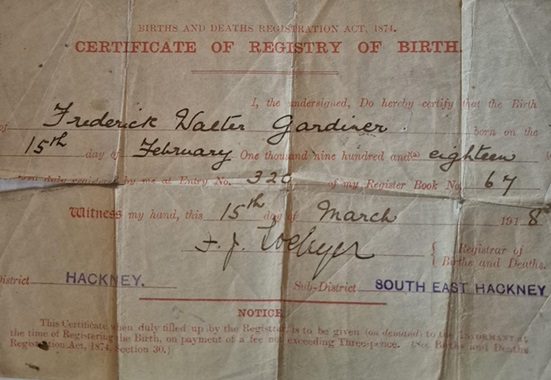 BIRTHS AND DEATHS REGISTRATION ACT, 1874.
CERTIFICATE OF REGISTRY OF BIRTH.
I, the undersigned, Do hereby certify that the Birth
of Frederick Walter Gardiner born on the
15th day of February One thousand nine hundred and eighteen
duly registered by me at Entry No. 320 of my Register Book No. 67
Witness my hand, this 15th day of March 1918
F. J.
Registrar of
Births and Deaths.
District HACKNEY. Sub-District SOUTH EAST HACKNEY
NOTICE
This Certificate when duly filled up by the Registrar, is to be given (on demand) to the INFORMANT at
the time of Registering the Birth, on payment of a fee not exceeding Three-pence. (See Births and Deaths
Registration Act, 1874, Section 30.)